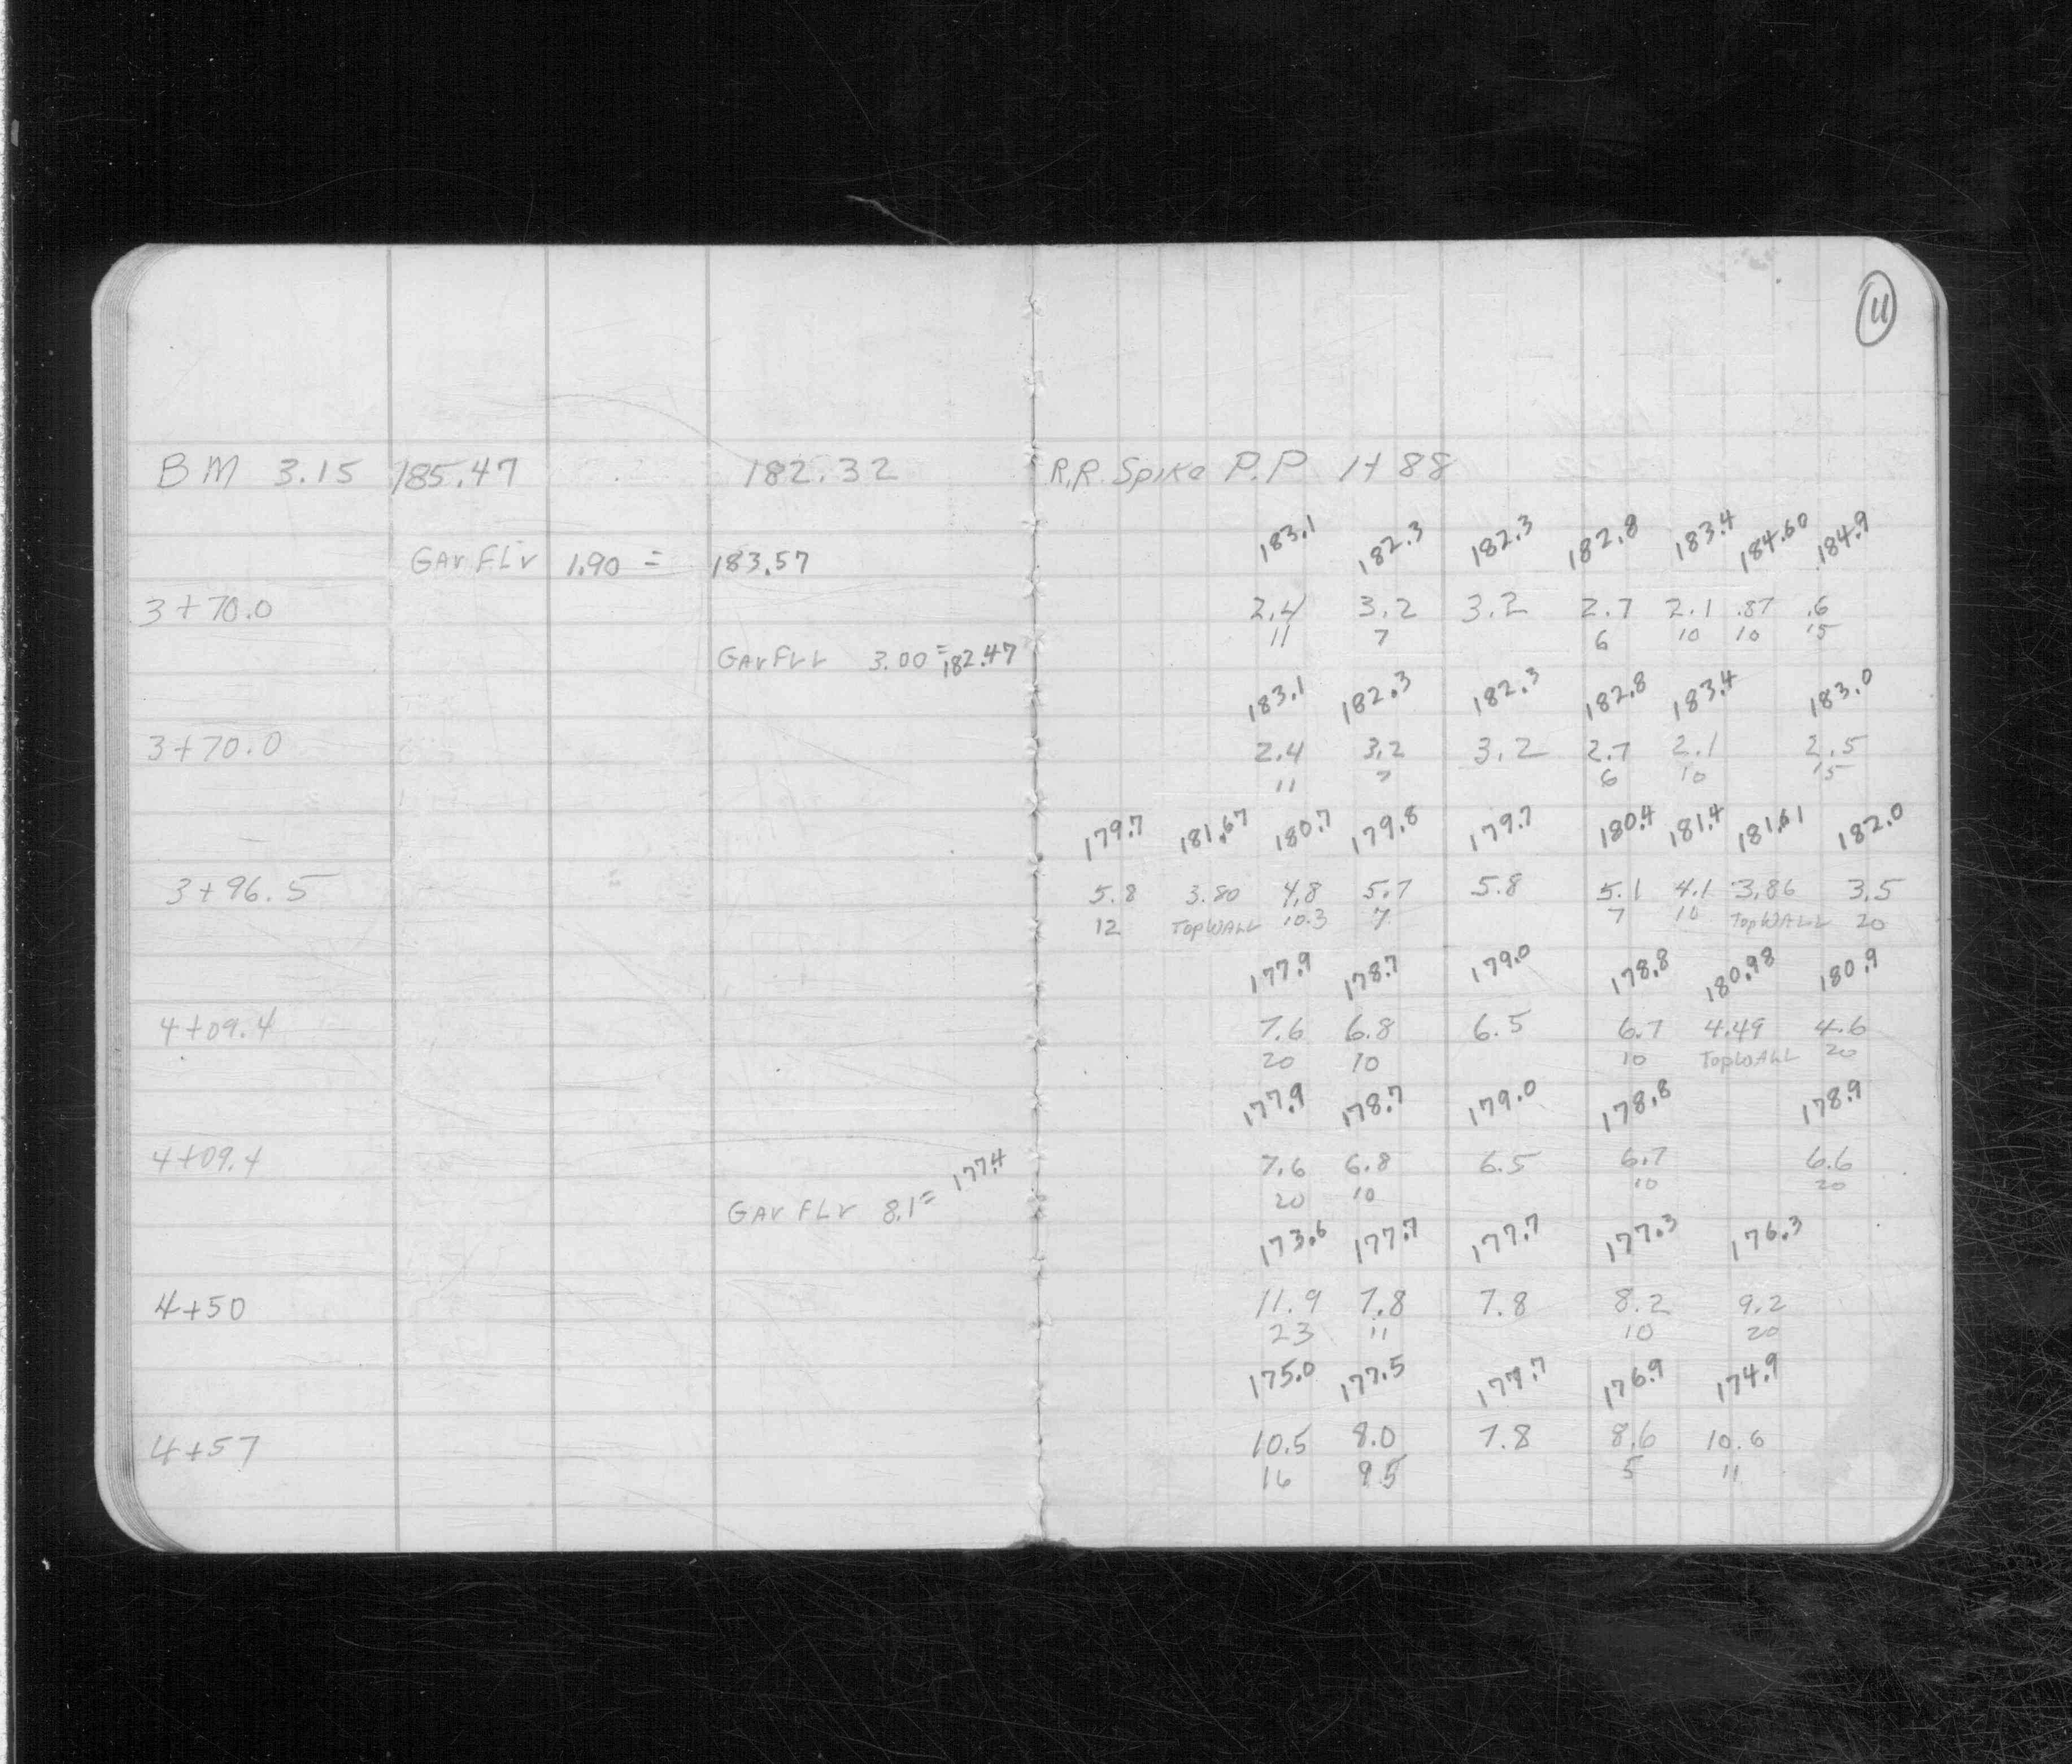 11
BM 3.15 185.47 182.32 R.R. Spike P.P 1+88
183.1 182.3 182.3 182.8 183.4 184.60 184.9
Gar Flr 1.90 = 183.57
3+70.0 2.4 3.2 3.2 2.7 2.1 .87 .6
11 7 6 10 10 15
Gar Flr 3.00 = 182.47
183.1 182.3 182.3 182.8 183.4 183.0
3+70.0 2.4 3.2 3.2 2.7 2.1 2.5
11 7 6 10 15
179.7 181.67 180.7 179.8 179.7 180.4 181.4 181.61 182.0
3+96.5 5.8 3.80 4.8 5.7 5.8 5.1 4.1 3.86 3.5
12 Top WALL 10.3 7 7 10 Top WALL 20
177.9 178.7 179.0 178.8 180.98 180.9
4+09.4 7.6 6.8 6.5 6.7 4.49 4.6
20 10 10 Top WALL 20
177.9 178.7 179.0 178.8 178.9
4+09.4 7.6 6.8 6.5 6.7 6.6
20 10 10 20
Gar Flr 8.1 = 177.4
173.6 177.7 177.7 177.3 176.3
4+50 11.9 7.8 7.8 8.2 9.2
23 11 10 20
175.0 177.5 177.7 176.9 174.9
4+57 10.5 8.0 7.8 8.6 10.6
16 9.5 5 11